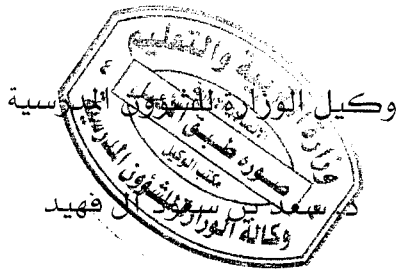 وكيل الوزارة للشؤون المدرسية
د. سعد بن سعود آل فهيد
وزارة التربية والتعليم
صورة طبق
مكتب الوكيل
وكالة الوزارة للشؤون المدرسية